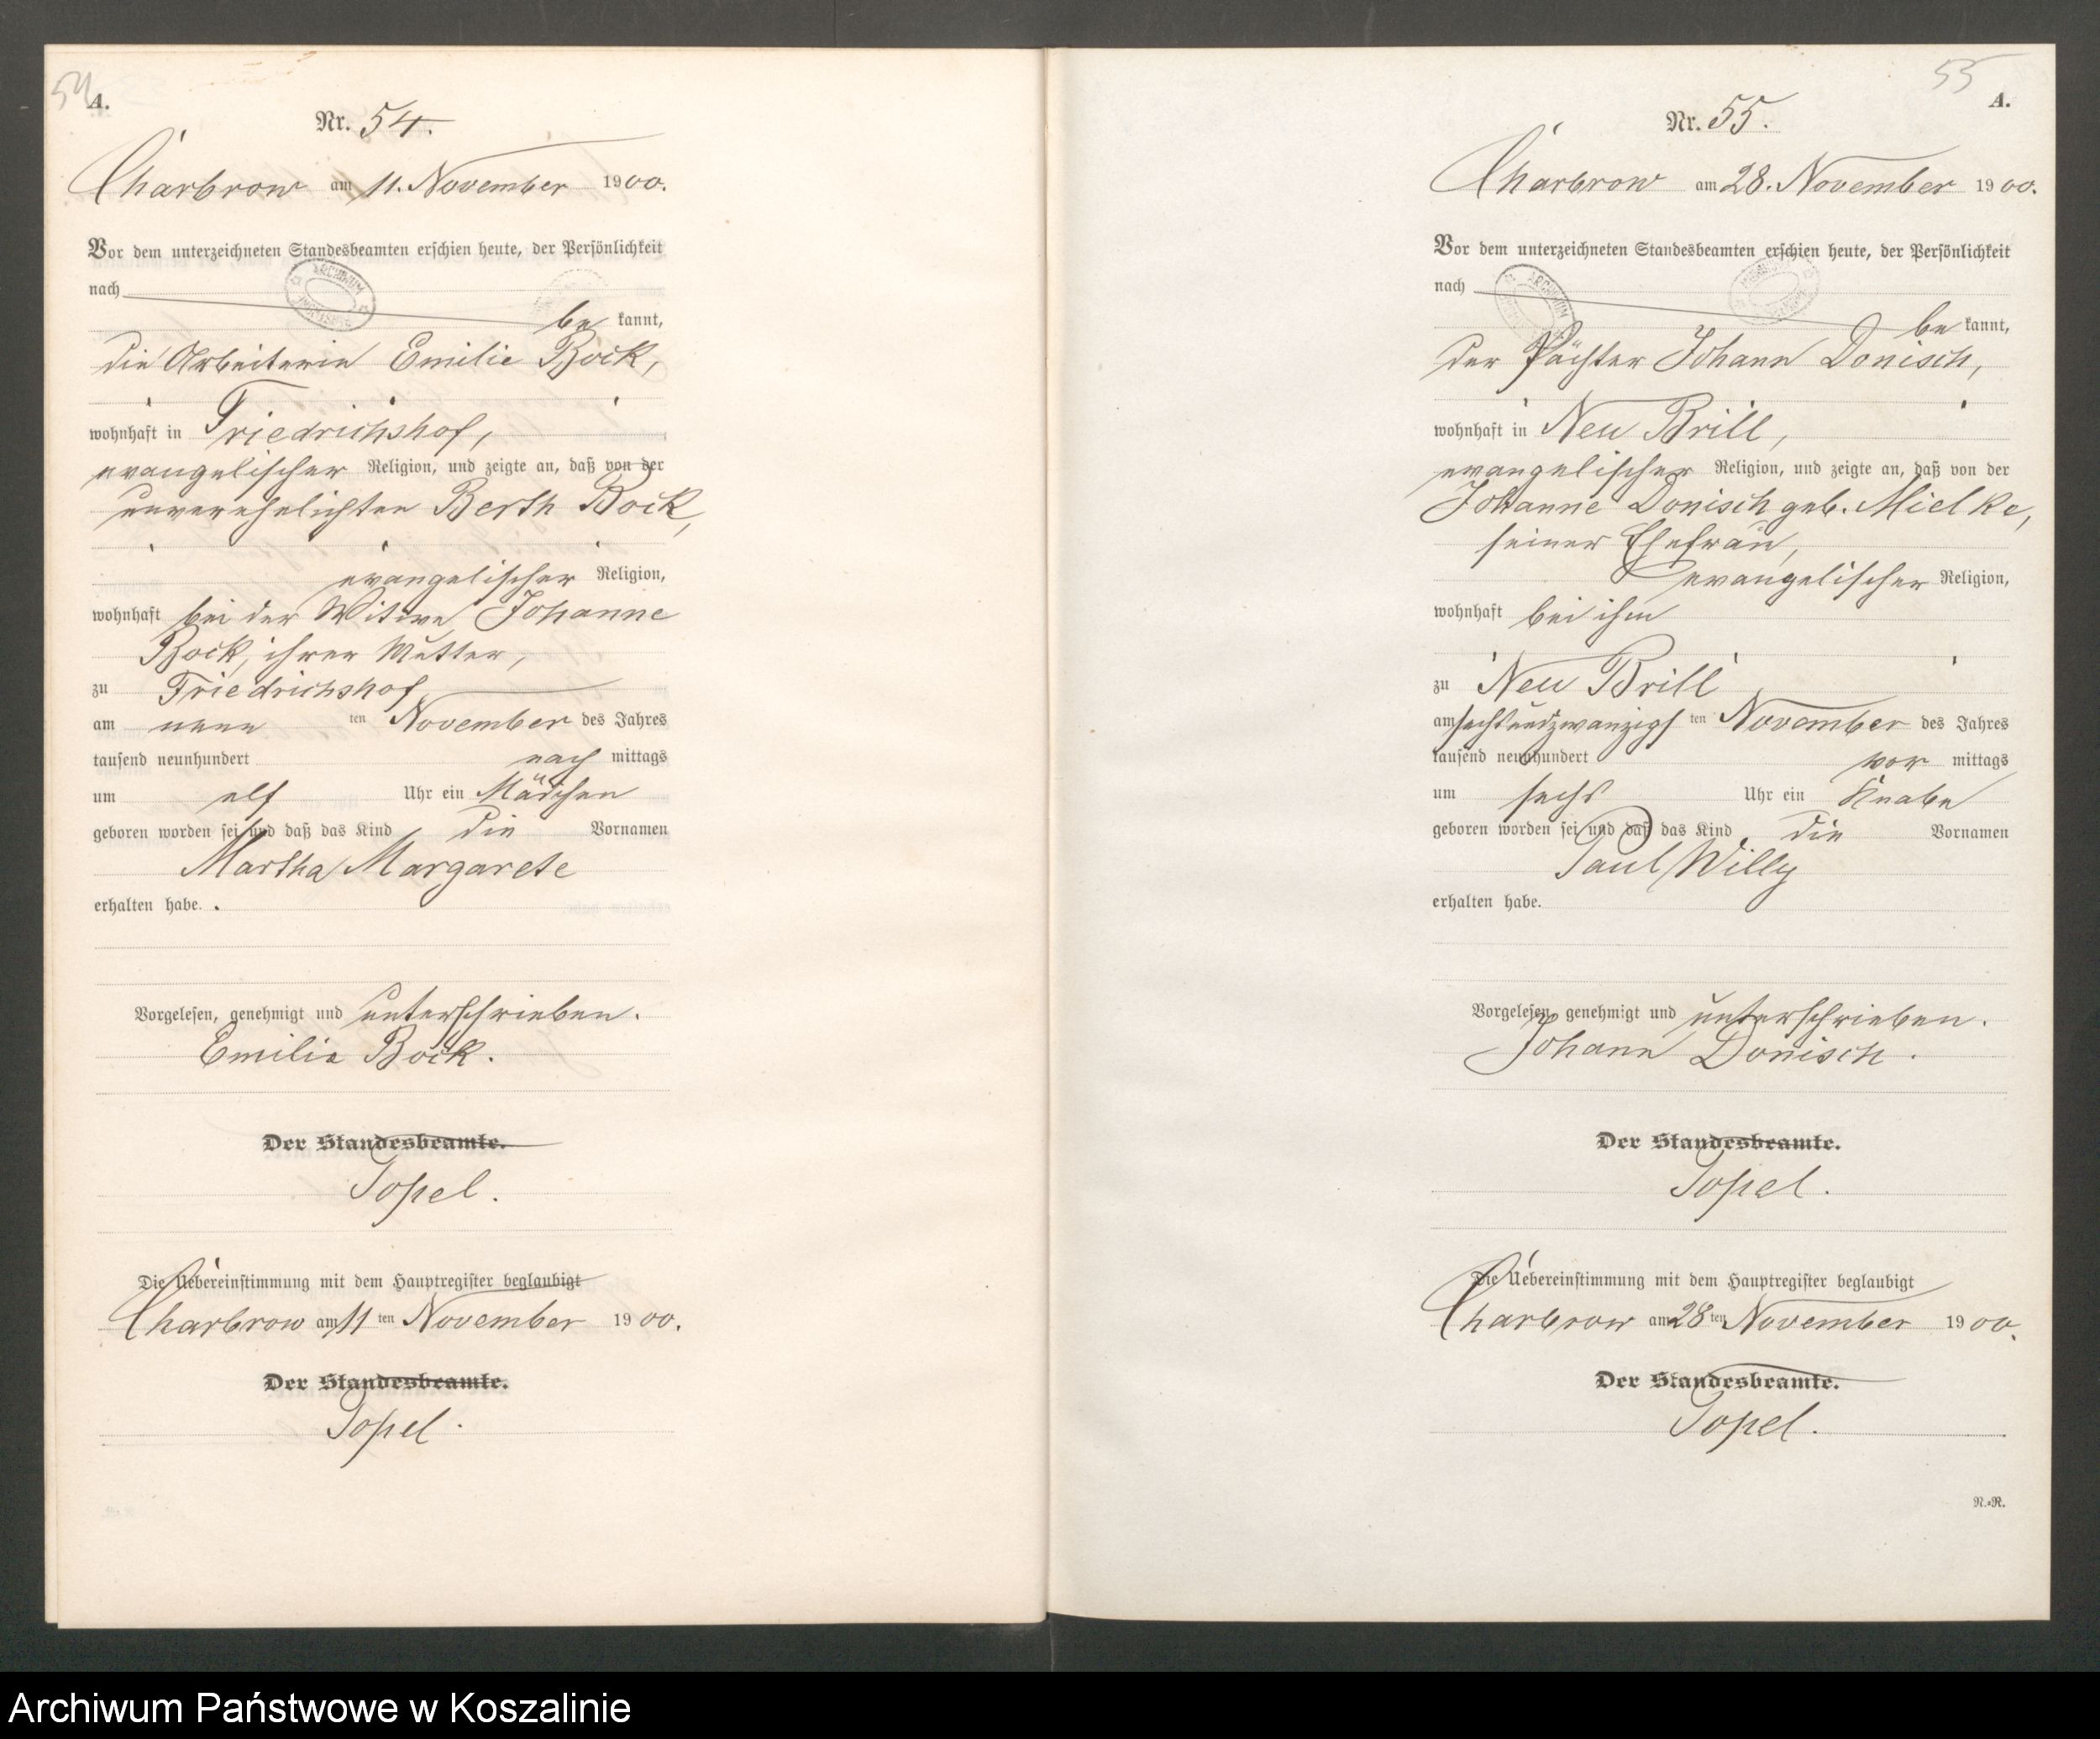 54
A.
Nr. 54.
Charbrow am 11. November 1900.
Vor dem unterzeichneten Standesbeamten erschien heute, der Persönlichkeit
nach
be kannt,
die Arbeiterin Emilie Bock,
wohnhaft in Friedrichshof,
evangelischer Religion, und zeigte an, daß von der
unverehelichten Berth Bock,
evangelischer Religion,
wohnhaft bei der Witwe Johanne
Bock, ihrer Mutter,
zu Friedrichshof
am neun ten November des Jahres
tausend neunhundert nach mittags
um elf Uhr ein Mädchen
geboren worden sei und daß das Kind die Vornamen
Martha Margarete
erhalten habe.
Vorgelesen, genehmigt und unterschrieben.
Emilie Bock.
Der Standesbeamte.
Topel.
Die Uebereinstimmung mit dem Hauptregister beglaubigt
Charbrow am 11 ten November 1900.
Der Standesbeamte.
Topel.
55
A.
Nr. 55.
Charbrow am 28. November 1900.
Vor dem unterzeichneten Standesbeamten erschien heute, der Persönlichkeit
nach
be kannt,
der Pächter Johann Donisch,
wohnhaft in Neu Brill,
evangelischer Religion, und zeigte an, daß von der
Johanne Donisch geb. Mielke,
seiner Ehefrau,
evangelischer Religion,
wohnhaft bei ihm
zu Neu Brill
am sechsundzwanzigs ten November des Jahres
tausend neunhundert vor mittags
um sechs Uhr ein Knabe
geboren worden sei und daß das Kind die Vornamen
Paul Willy
erhalten habe.
Vorgelesen, genehmigt und unterschrieben.
Johann Donisch.
Der Standesbeamte.
Topel.
Die Uebereinstimmung mit dem Hauptregister beglaubigt
Charbrow am 28 ten November 1900.
Der Standesbeamte.
Topel.
N.-R.
Archiwum Państwowe w Koszalinie